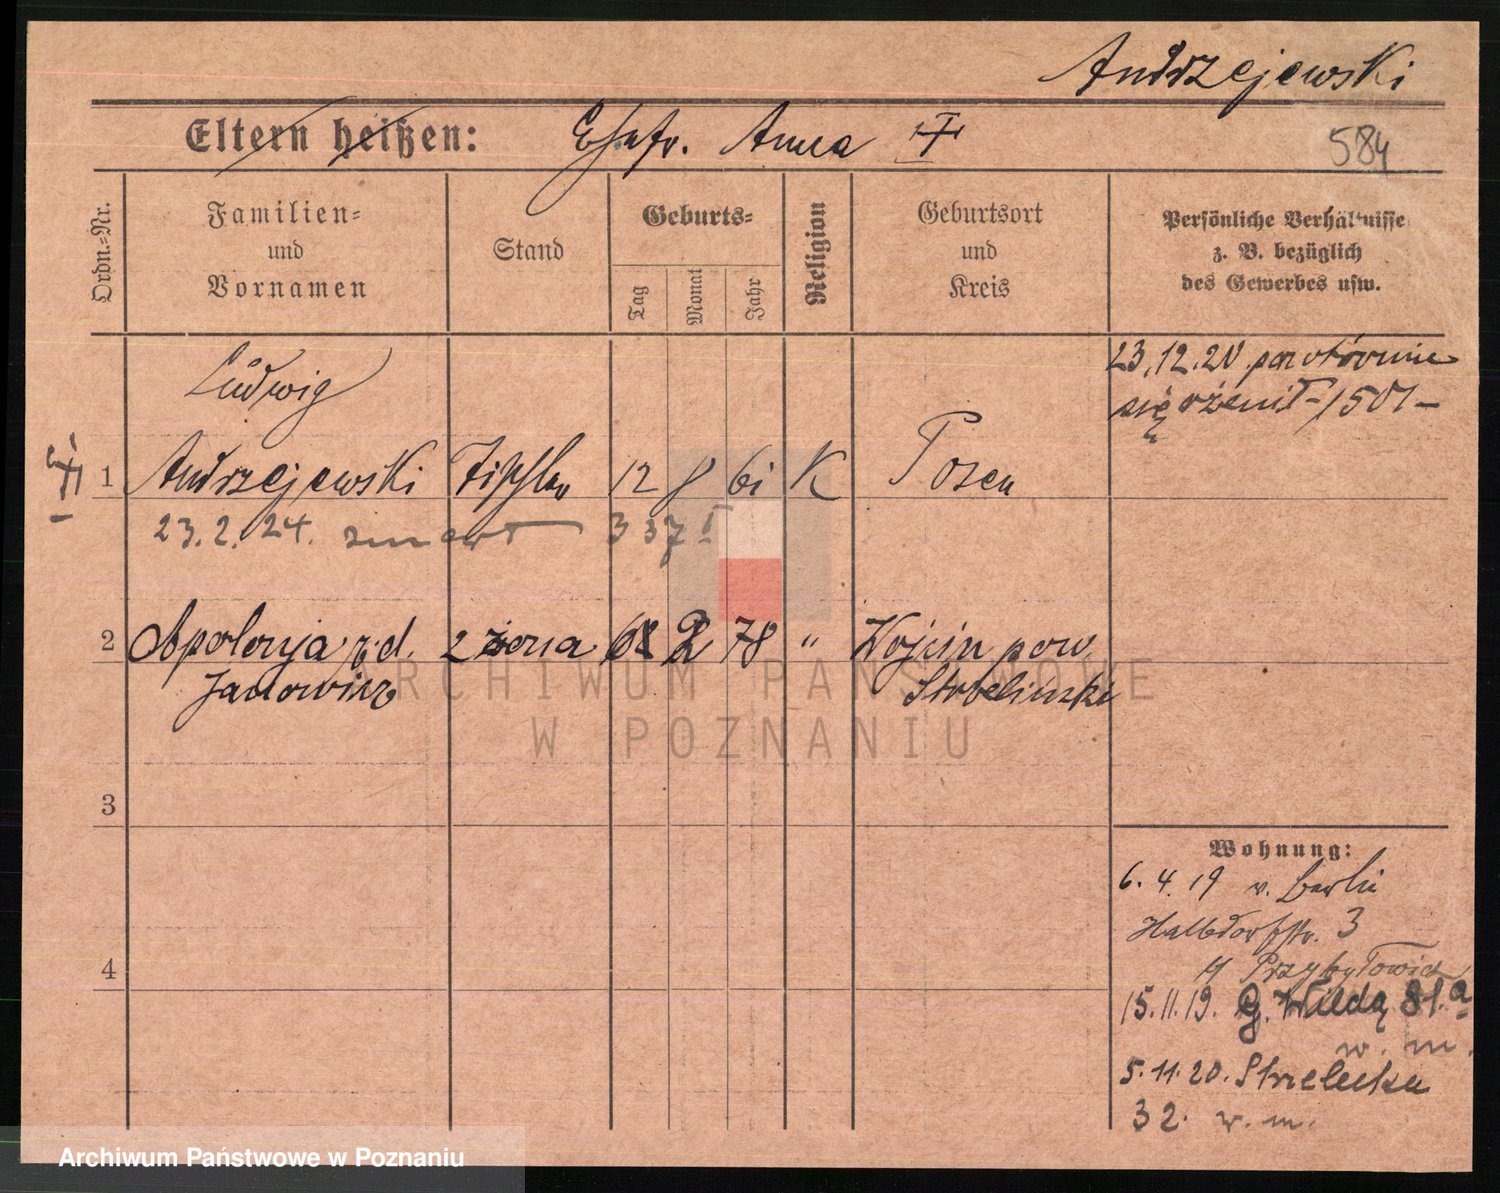 Andrzejewski
Eltern heißen: Ehefr. Anna
584
Ordn.=Nr.
Familien=
und
Vornamen
Stand
Geburts=
Tag
Monat
Jahr
Religion
Geburtsort
und
Kreis
Persönliche Verhältnisse
z. B. bezüglich
des Gewerbes usw.
23.12.20 powtórnie
się ożenił - 1501 -
Ludwig
1 Andrzejewski Tischler 12 8 61 K Posen
23.2.24. zmarł 337 I
2 Apolonja r.d. 2 żona 2 78 " Wojcin pow.
Janowicz Strzeliński
3
4
Wohnung:
6.4.19 v. Berlin
Halbdorfstr. 3
Przybyłowicz
15.11.19. G. Wilda 81.a
w. m.
5.11.20. Strzelecka
32. w. m.
ARCHIWUM PAŃSTWOWE
W POZNANIU
Archiwum Państwowe w Poznaniu